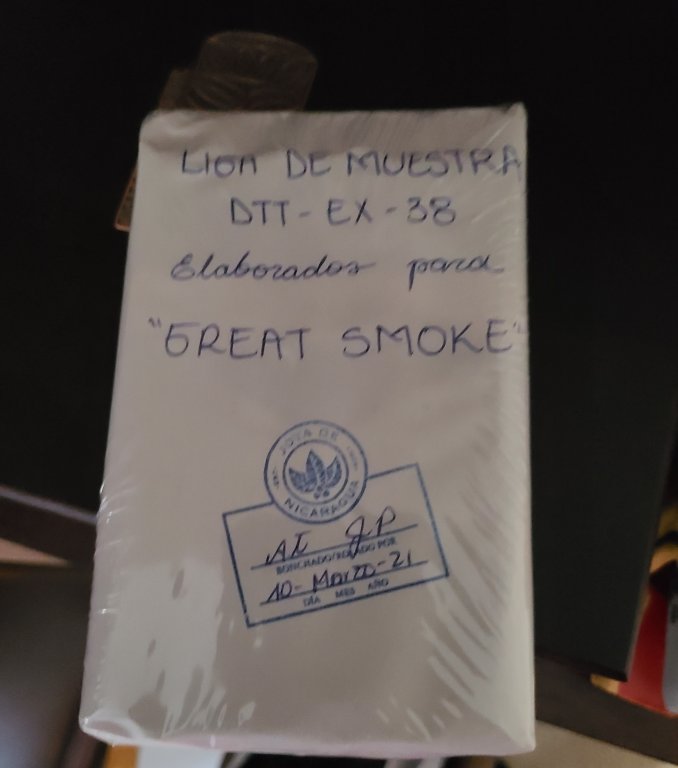 LIGA DE MUESTRA
DTT-EX-38
Elaborados para
"GREAT SMOKE"
JOYA DE
NICARAGUA
AI JP
BONCHADO/ROLADO POR
10-Marzo-21
DÍA MES AÑO